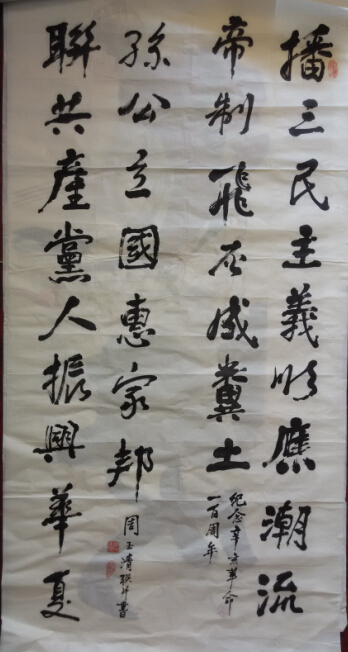 播三民主義順應潮流
帝制飛灰成糞土
紀念辛亥革命
一百周年
孫公立國惠家邦
周玉清联并書
聯共產黨人振興華夏